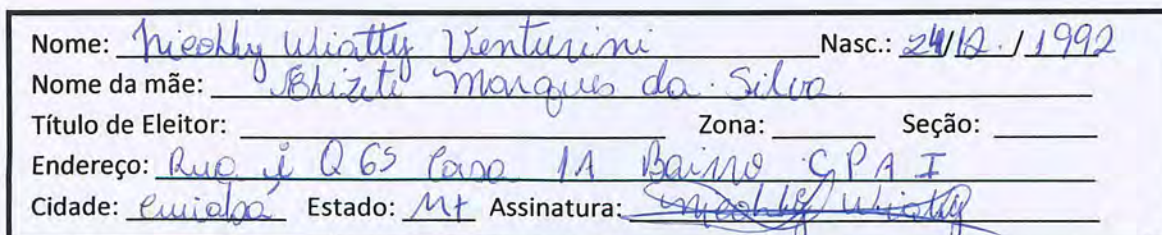 Nome: Nieohhy Wiatty Venturini Nasc.: 24/12/1992
Nome da mãe: Elizete Marques da Silva
Título de Eleitor: Zona: Seção:
Endereço: Rua i Q 65 Casa 1A Bairro CPA I
Cidade: Cuiabá Estado: Mt Assinatura: